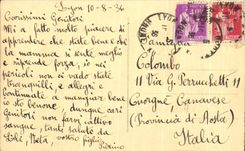 Lyon 10-8-36
Carissimi
Genitori
Mi a fatto molto piacere di
apprendere che state bene e che
la mamma si sente meglio e
riprende forza, io nei
pericoli non ci vado state
tranquilli, e allegri e
continuate a mangiare bene
io sto benone. dunque cari
Genitori non farvi cattivo
sangue, tante salute da
Lolì, Bela, vostro figlio
Pierino
LYON
Famiglia
Colombo
11 Via G. Perrucchetti 11
Cuorgnè Canavese
(Provincia di Aosta)
Italia